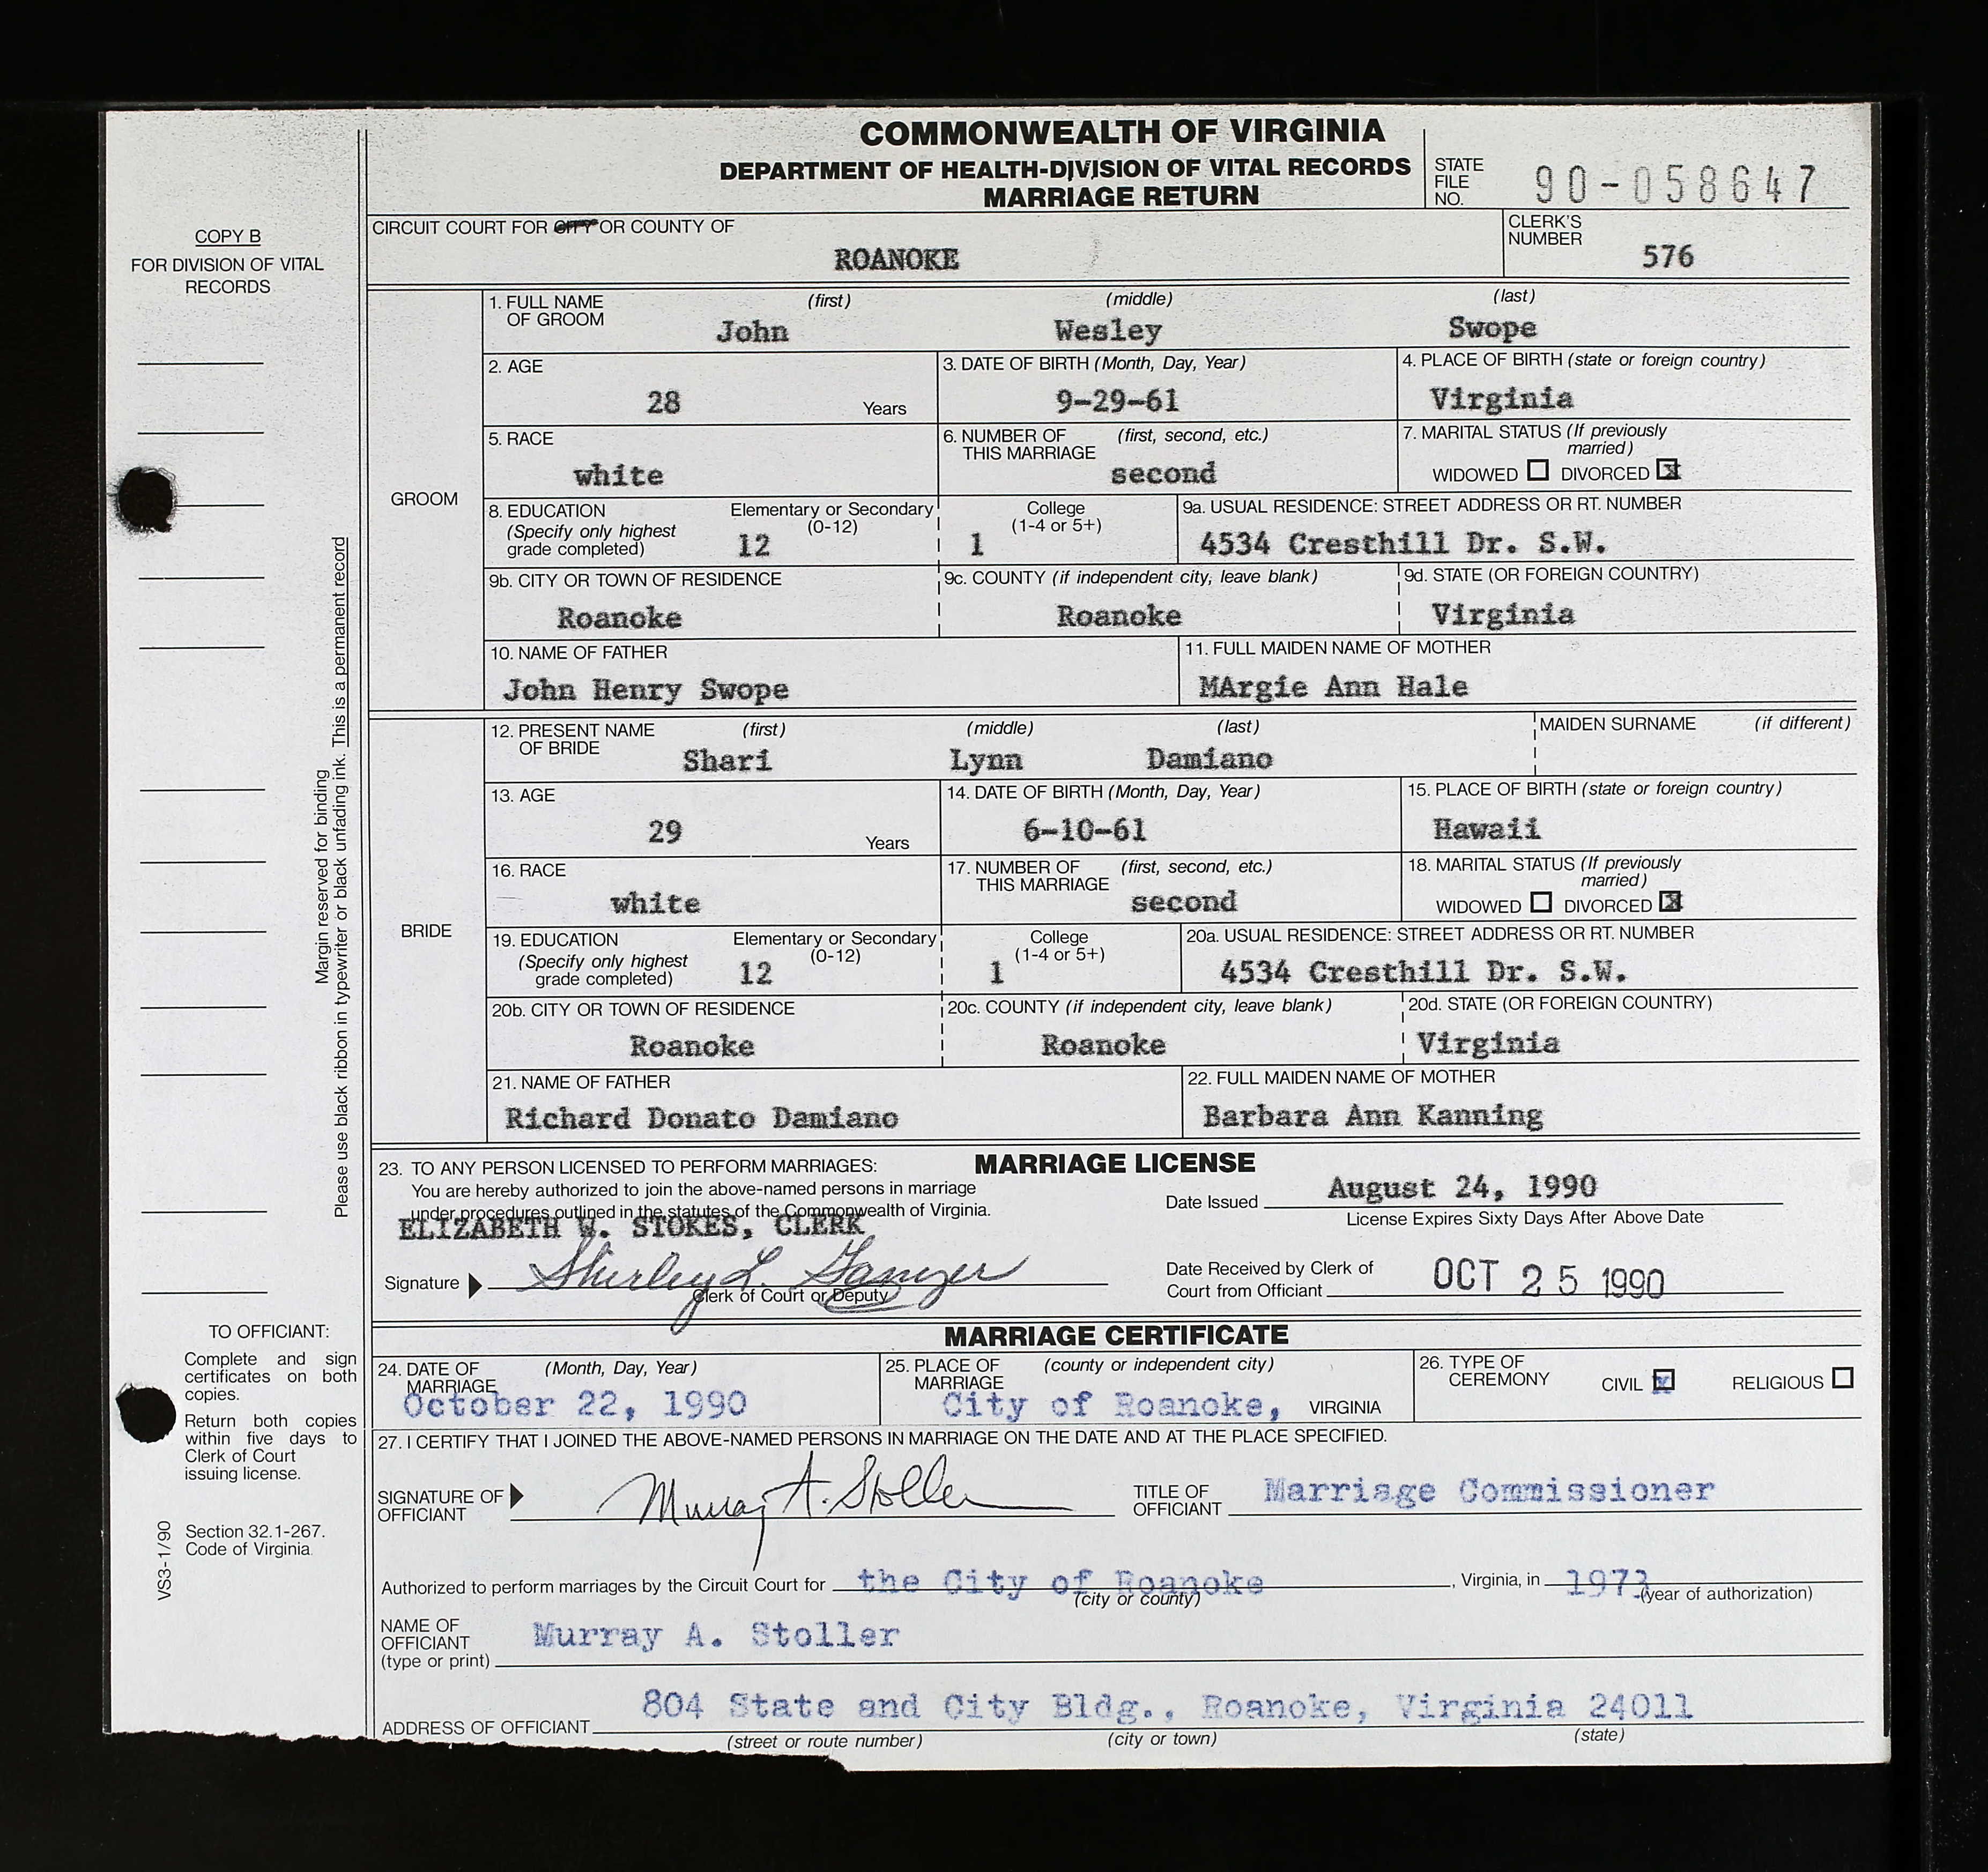 COMMONWEALTH OF VIRGINIA
DEPARTMENT OF HEALTH-DIVISION OF VITAL RECORDS
MARRIAGE RETURN
STATE FILE NO. 90-058647
COPY B
FOR DIVISION OF VITAL RECORDS
CIRCUIT COURT FOR CITY OR COUNTY OF
ROANOKE
CLERK'S NUMBER 576
GROOM
1. FULL NAME OF GROOM (first) (middle) (last)
John Wesley Swope
2. AGE 3. DATE OF BIRTH (Month, Day, Year) 4. PLACE OF BIRTH (state or foreign country)
28 Years 9-29-61 Virginia
5. RACE 6. NUMBER OF THIS MARRIAGE (first, second, etc.) 7. MARITAL STATUS (If previously married)
white second WIDOWED ☐ DIVORCED ☒
8. EDUCATION (Specify only highest grade completed) Elementary or Secondary (0-12) College (1-4 or 5+) 9a. USUAL RESIDENCE: STREET ADDRESS OR RT. NUMBER
12 1 4534 Cresthill Dr. S.W.
9b. CITY OR TOWN OF RESIDENCE 9c. COUNTY (if independent city, leave blank) 9d. STATE (OR FOREIGN COUNTRY)
Roanoke Roanoke Virginia
10. NAME OF FATHER 11. FULL MAIDEN NAME OF MOTHER
John Henry Swope MArgie Ann Hale
BRIDE
12. PRESENT NAME OF BRIDE (first) (middle) (last) MAIDEN SURNAME (if different)
Shari Lynn Damiano
13. AGE 14. DATE OF BIRTH (Month, Day, Year) 15. PLACE OF BIRTH (state or foreign country)
29 Years 6-10-61 Hawaii
16. RACE 17. NUMBER OF THIS MARRIAGE (first, second, etc.) 18. MARITAL STATUS (If previously married)
white second WIDOWED ☐ DIVORCED ☒
19. EDUCATION (Specify only highest grade completed) Elementary or Secondary (0-12) College (1-4 or 5+) 20a. USUAL RESIDENCE: STREET ADDRESS OR RT. NUMBER
12 1 4534 Cresthill Dr. S.W.
20b. CITY OR TOWN OF RESIDENCE 20c. COUNTY (if independent city, leave blank) 20d. STATE (OR FOREIGN COUNTRY)
Roanoke Roanoke Virginia
21. NAME OF FATHER 22. FULL MAIDEN NAME OF MOTHER
Richard Donato Damiano Barbara Ann Kanning
23. TO ANY PERSON LICENSED TO PERFORM MARRIAGES: MARRIAGE LICENSE
You are hereby authorized to join the above-named persons in marriage
under procedures outlined in the statutes of the Commonwealth of Virginia.
Date Issued August 24, 1990
License Expires Sixty Days After Above Date
ELIZABETH W. STOKES, CLERK
Signature Shirley L.
Clerk of Court or Deputy
Date Received by Clerk of
Court from Officiant OCT 25 1990
MARRIAGE CERTIFICATE
24. DATE OF MARRIAGE (Month, Day, Year) 25. PLACE OF MARRIAGE (county or independent city) 26. TYPE OF CEREMONY CIVIL ☒ RELIGIOUS ☐
October 22, 1990 City of Roanoke, VIRGINIA
27. I CERTIFY THAT I JOINED THE ABOVE-NAMED PERSONS IN MARRIAGE ON THE DATE AND AT THE PLACE SPECIFIED.
SIGNATURE OF OFFICIANT Murray A. Stoller TITLE OF OFFICIANT Marriage Commissioner
Authorized to perform marriages by the Circuit Court for the City of Roanoke, Virginia, in 1973
(city or county) (year of authorization)
NAME OF OFFICIANT (type or print) Murray A. Stoller
ADDRESS OF OFFICIANT 804 State and City Bldg., Roanoke, Virginia 24011
(street or route number) (city or town) (state)
Margin reserved for binding
Please use black ribbon in typewriter or black unfading ink. This is a permanent record
TO OFFICIANT:
Complete and sign
certificates on both
copies.
Return both copies
within five days to
Clerk of Court
issuing license.
Section 32.1-267.
Code of Virginia
VS3-1/90